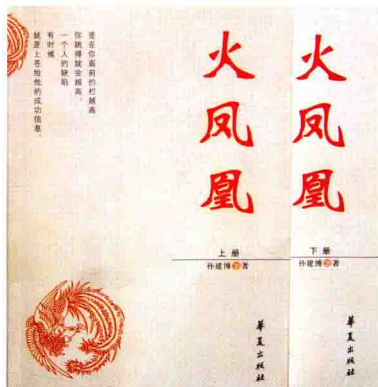 竖在你面前的栏越高
你跳得就会越高。
一个人的缺陷
有时候
就是上苍给他的成功信息。
火凤凰
上册
孙建博 著
华夏出版社
火凤凰
下册
孙建博 著
华夏出版社